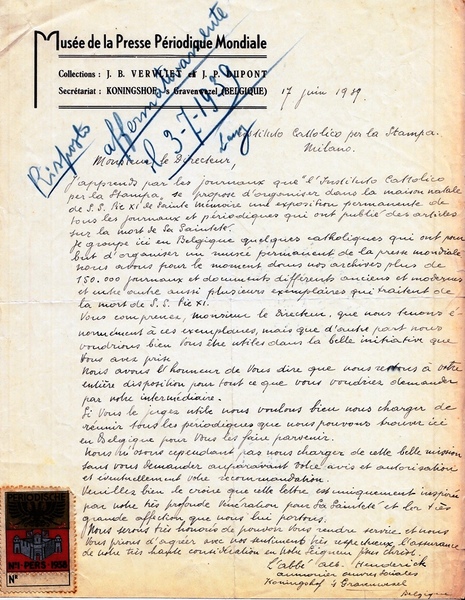 Musée de la Presse Périodique Mondiale
Collections : J. B. VERVLIET et J. P. DUPONT
Secrétariat : KONINGSHOF, 's Gravenwezel (BELGIQUE)
17 juin 1939.
Risposto affermativamente
il 3-7-1939
Instituto Cattolico per la Stampa.
Milano.
Monsieur le Directeur,
J'apprends par les journaux que "l'Instituto Cattolico
per la Stampa" se propose d'organiser dans la maison natale
de S.S. Pie XI de Sainte mémoire une exposition permanente de
tous les journaux et périodiques qui ont publié des articles
sur la mort de Sa Sainteté.
Je groupe ici en Belgique quelques catholiques qui ont pour
but d'organiser un musée permanent de la presse mondiale
nous avons pour le moment dans nos archives plus de
150.000 journaux et documents différents anciens et modernes
et entre autre aussi plusieurs exemplaires qui traitent de
la mort de S.S. Pie XI.
Vous comprenez, monsieur le Directeur, que nous tenons é-
normément à ces exemplaires, mais que d'autre part nous
voudrions bien vous être utiles dans la belle initiative que
vous avez prise.
Nous avons l'honneur de Vous dire que nous restons à votre
entière disposition pour tout ce que vous voudriez demander
par notre intermédiaire.
Si Vous le jugez utile nous voulons bien nous charger de
réunir tous les périodiques que nous pouvons trouver ici
en Belgique pour Vous les faire parvenir.
Nous n'osons cependant pas nous charger de cette belle mission
sans vous demander auparavant votre avis et autorisation
et éventuellement votre recommandation.
Veuillez bien le croire que cette lettre est uniquement inspirée
par notre très profonde vénération pour Sa Sainteté et la très
grande affection que nous lui portons.
Nous serons très honorés de pouvoir Vous rendre service et nous
Vous prions d'agréer avec nos sentiments très respectueux l'assurance
de notre très haute considération en Notre Seigneur Jésus Christ.
l'abbé
aumonier œuvres sociales
Koningshof 's Gravenwezel
Belgique
PERS-1938
N°